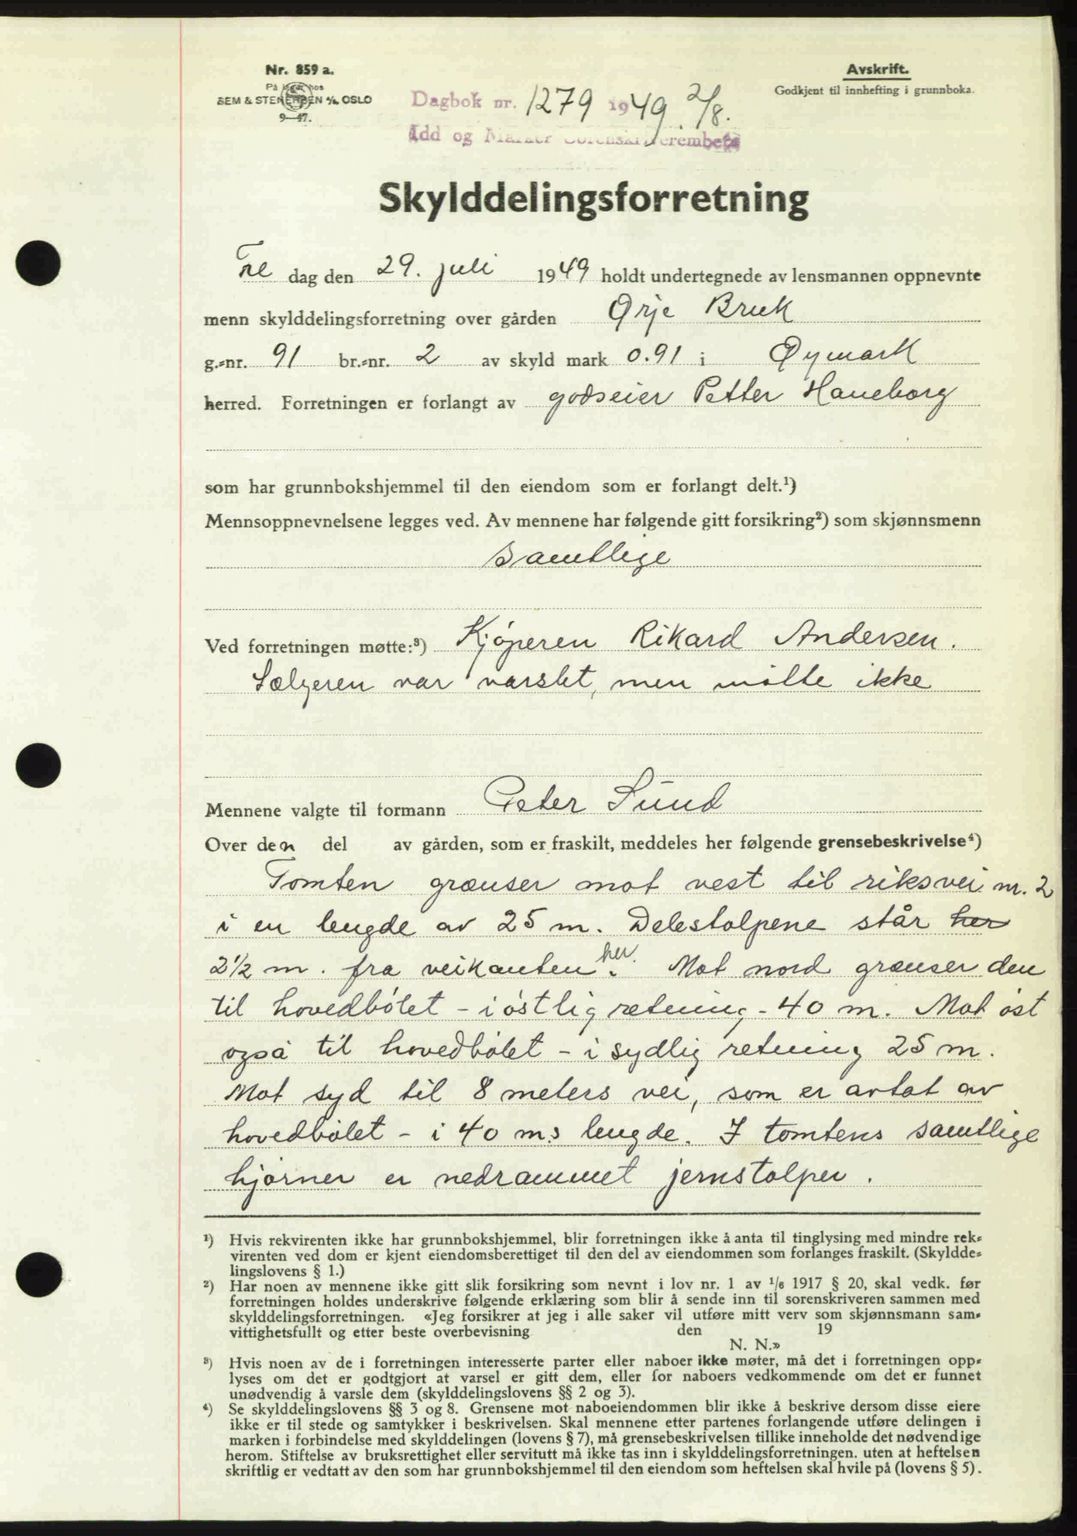 Nr. 859 a.
På lager hos
SEM & STENERSEN A/S OSLO
9-47.
Avskrift.
Godkjent til innhefting i grunnboka.
Dagbok nr. 1279 1949 2/8.
Idd og Marker Sorenskriverembete
Skylddelingsforretning
Fre dag den 29. juli 1949 holdt undertegnede av lensmannen oppnevnte
menn skylddelingsforretning over gården Ørje Bruk
g.-nr. 91 br.-nr. 2 av skyld mark 0.91 i Øymark
herred. Forretningen er forlangt av godseier Petter Haneborg
som har grunnbokshjemmel til den eiendom som er forlangt delt.¹)
Mennsoppnevnelsene legges ved. Av mennene har følgende gitt forsikring²) som skjønnsmenn
Samtlige
Ved forretningen møtte:³) Kjøperen Rikard Andersen.
Sælgeren var varslet, men møtte ikke
Mennene valgte til formann Peter Sund
Over den del av gården, som er fraskilt, meddeles her følgende grensebeskrivelse⁴)
Tomten grænser mot vest til riksvei nr. 2
i en lengde av 25 m. Delestolpene står her
2½ m. fra veikanten her. Mot nord grænser den
til hovedbølet - i østlig retning - 40 m. Mot øst
også til hovedbølet - i sydlig retning 25 m.
Mot syd til 8 meters vei, som er avtat av
hovedbølet - i 40 m.s lengde. I tomtens samtlige
hjørner er nedrammet jernstolper.
¹) Hvis rekvirenten ikke har grunnbokshjemmel, blir forretningen ikke å anta til tinglysing med mindre rek-
virenten ved dom er kjent eiendomsberettiget til den del av eiendommen som forlanges fraskilt. (Skyldde-
lingslovens § 1.)
²) Har noen av mennene ikke gitt slik forsikring som nevnt i lov nr. 1 av 1/6 1917 § 20, skal vedk. før
forretningen holdes underskrive følgende erklæring som blir å sende inn til sorenskriveren sammen med
skylddelingsforretningen. «Jeg forsikrer at jeg i alle saker vil utføre mitt verv som skjønnsmann sam-
vittighetsfullt og etter beste overbevisning den 19
N. N.»
³) Hvis noen av de i forretningen interesserte parter eller naboer ikke møter, må det i forretningen opp-
lyses om det er godtgjort at varsel er gitt dem, eller for naboers vedkommende om det er funnet
unødvendig å varsle dem (skylddelingslovens §§ 2 og 3).
⁴) Se skylddelingslovens §§ 3 og 8. Grensene mot naboeiendommen blir ikke å beskrive dersom disse eiere
ikke er til stede og samtykker i beskrivelsen. Skal mennene etter partenes forlangende utføre delingen i
marken i forbindelse med skylddelingen (lovens § 7), må grensebeskrivelsen tillike inneholde det nødvendige
herom. Stiftelse av bruksrettighet eller servitutt må ikke tas inn i skylddelingsforretningen, uten at heftelsen
skriftlig er vedtatt av den som har grunnbokshjemmel til den eiendom som heftelsen skal hvile på (lovens § 5).